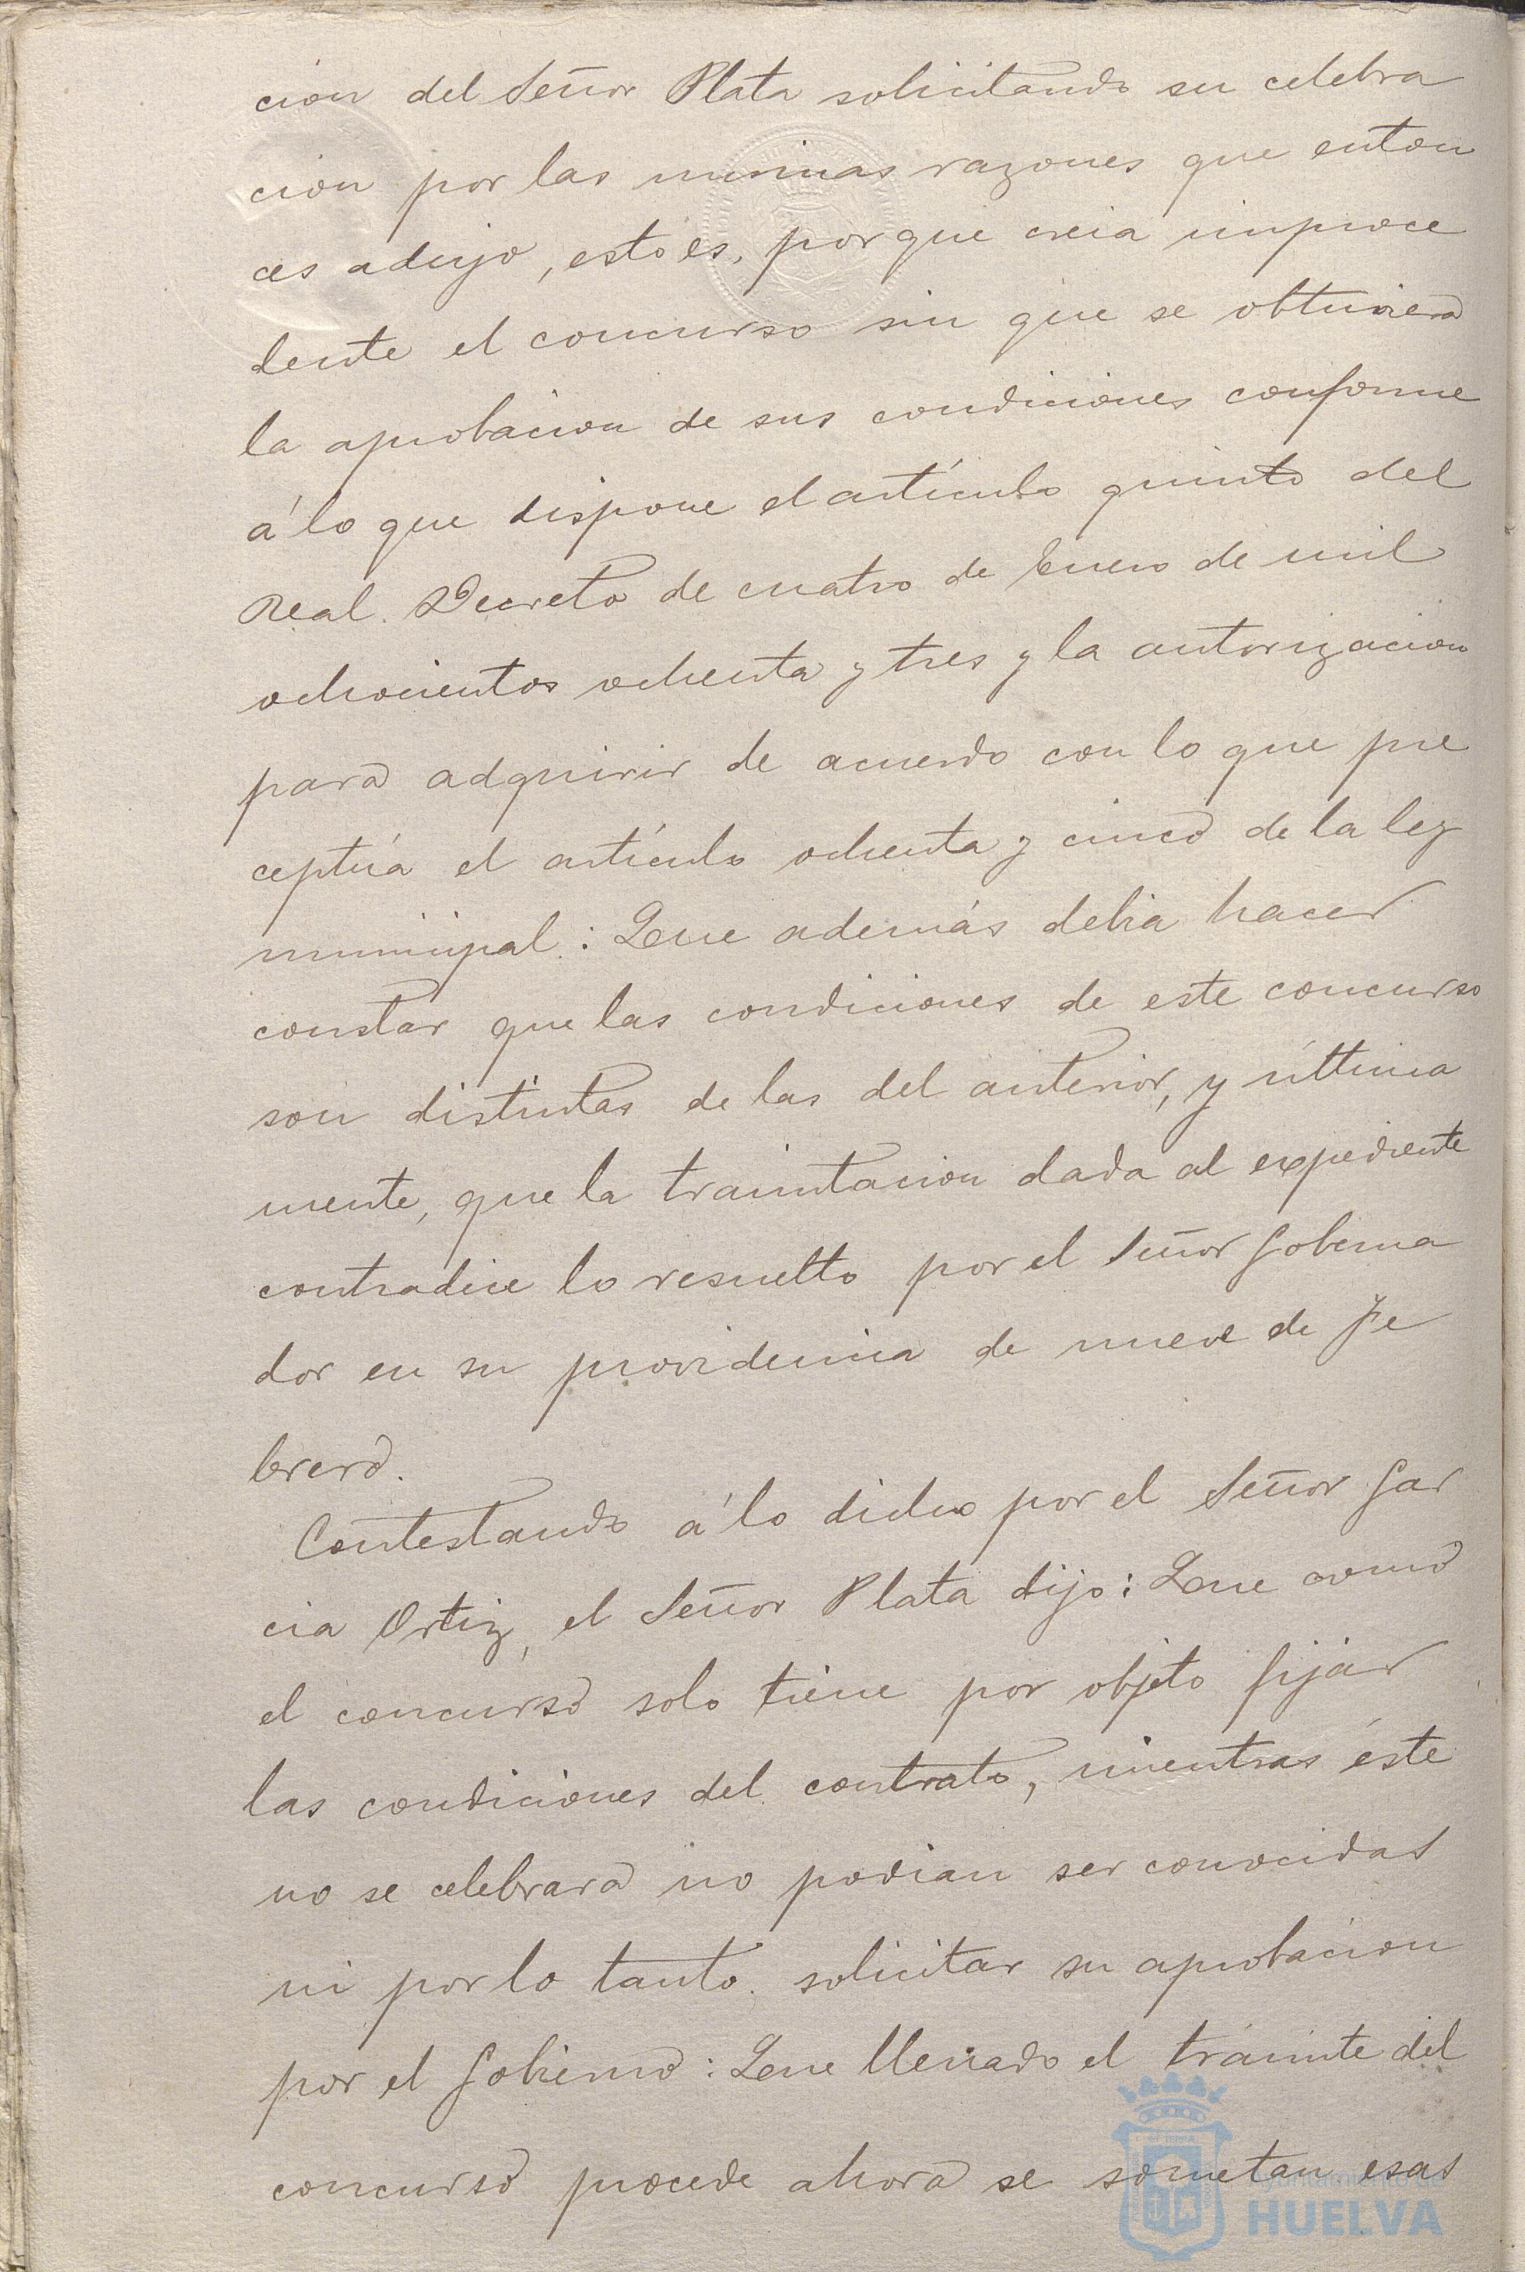 cion del Señor Plata solicitando su celebra
cion por las mismas razones que enton
ces adujo, esto es, porque creia improce
dente el concurso sin que se obtuviera
la aprobacion de sus condiciones conforme
á lo que dispone el artículo quinto del
Real Decreto de cuatro de Enero de mil
ochocientos ochenta y tres y la autorizacion
para adquirir de acuerdo con lo que pre
ceptúa el artículo ochenta y cinco de la ley
municipal: Que además debia hacer
constar que las condiciones de este concurso
son distintas de las del anterior, y última
mente, que la tramitacion dada al expediente
contradice lo resuelto por el Señor Goberna
dor en su providencia de nueve de Fe
brero.
Contestando á lo dicho por el Señor Gar
cia Ortiz, el Señor Plata dijo: Que como
el concurso solo tiene por objeto fijar
las condiciones del contrato, mientras éste
no se celebrara no podian ser conocidas
ni por lo tanto solicitar su aprobacion
por el Gobierno: Que llenado el trámite del
concurso procede ahora se sometan esas
Ayuntamiento de
HUELVA